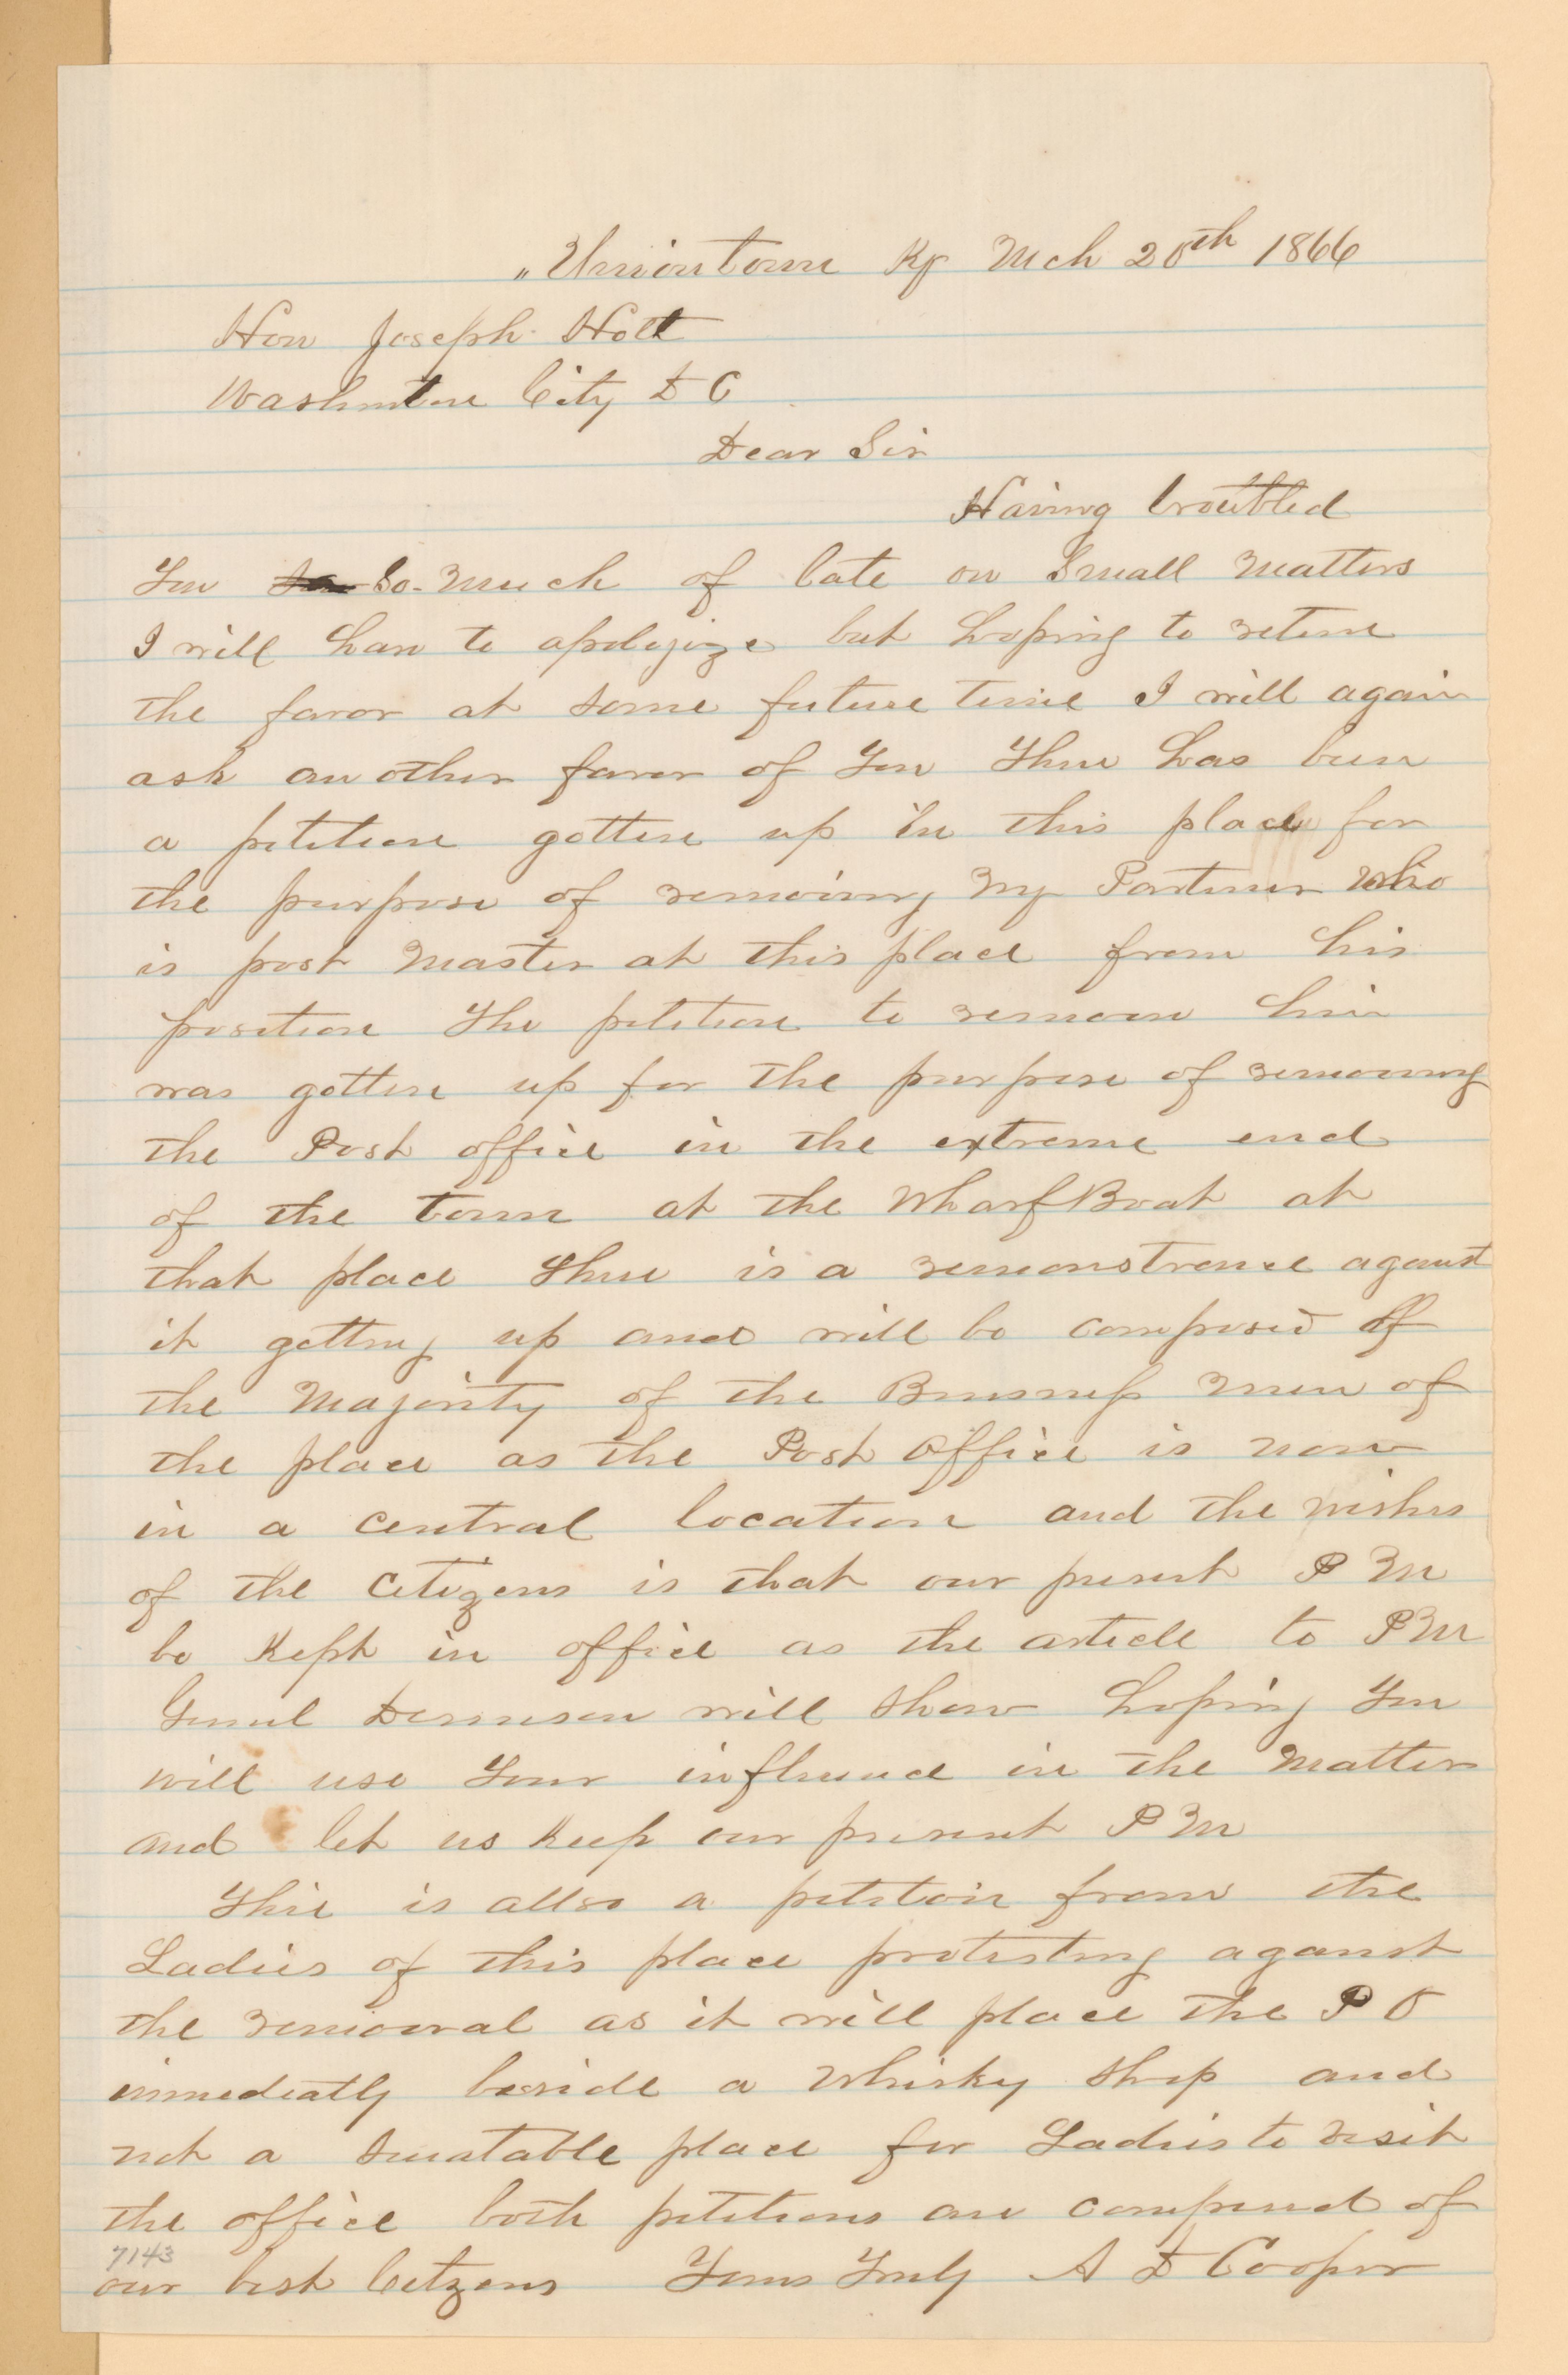 "Uniontown Ky Mch 20th 1866
Hon Joseph Holt
Washinton City D C
Dear Sir
Having troubled
You So much of late on Small matters
I will have to apologize but hoping to return
the favor at some future time I will again
ask another favor of You There has been
a petition gotten up in this place for
the purpose of removing my Partner who
is post master at this place from his
position The petition to remove him
was gotten up for the purpose of removing
the Post office in the extreme end
of the town at the Wharf Boat at
that place There is a remonstrance against
it getting up and will be composed of
the Majority of the Business men of
the place as the Post Office is now
in a central location and the wishes
of the Citizens is that our present P M
be Kept in office as the article to P M
Genrl Dennison will show hoping You
will use Your influence in the matter
and let us Keep our present P M
There is allso a petition from the
Ladies of this place protesting against
the removal as it will place the P O
immediatly beside a Whisky Shop and
not a suatable place for Ladies to visit
the office both petitions are composed of
7143
our best Citzens Yours Truly A D Cooper